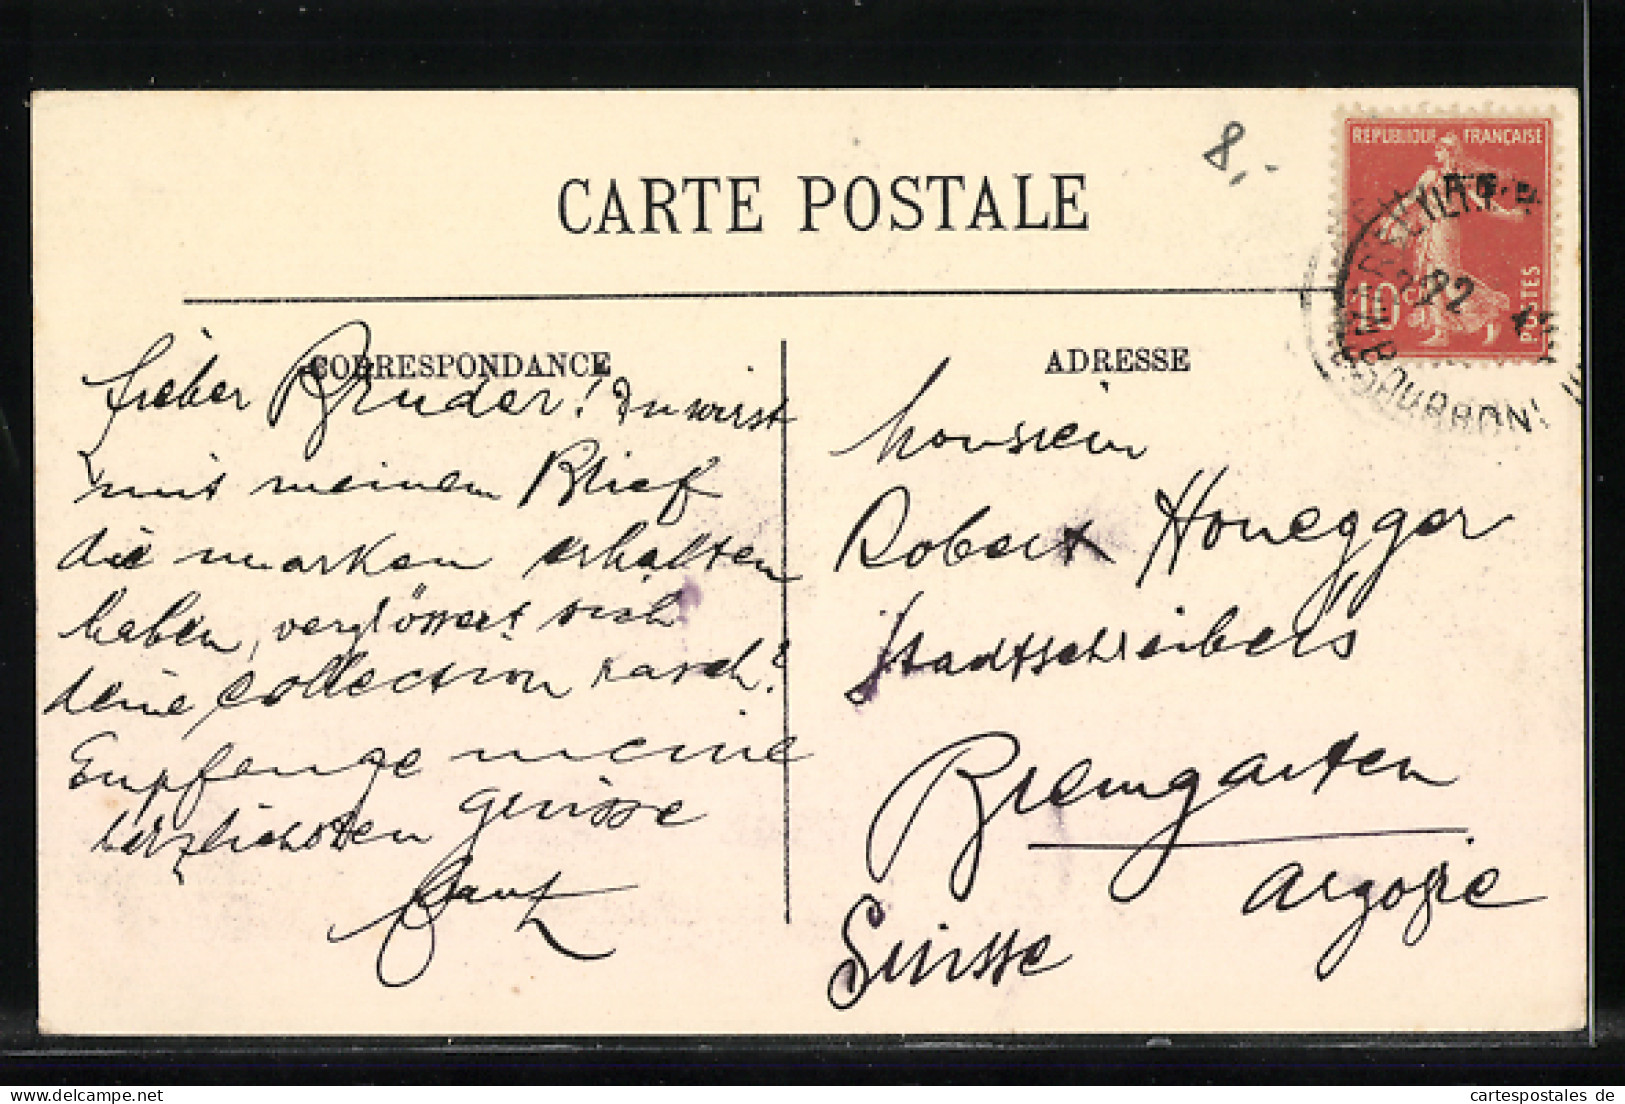 CARTE POSTALE
8,-
RÉPUBLIQUE FRANÇAISE
10 c
POSTES
22
CORRESPONDANCE
Lieber Bruder! Du wirst
mit meinem Brief
die marken erhalten
haben, verglössert sich
deine collection rasch?
Empfange meine
herzlichsten Grüsse
ADRESSE
Monsieur
Robert Honegger
Stadtschreibers
Bremgarten
Argovie
Suisse
cartespostales de